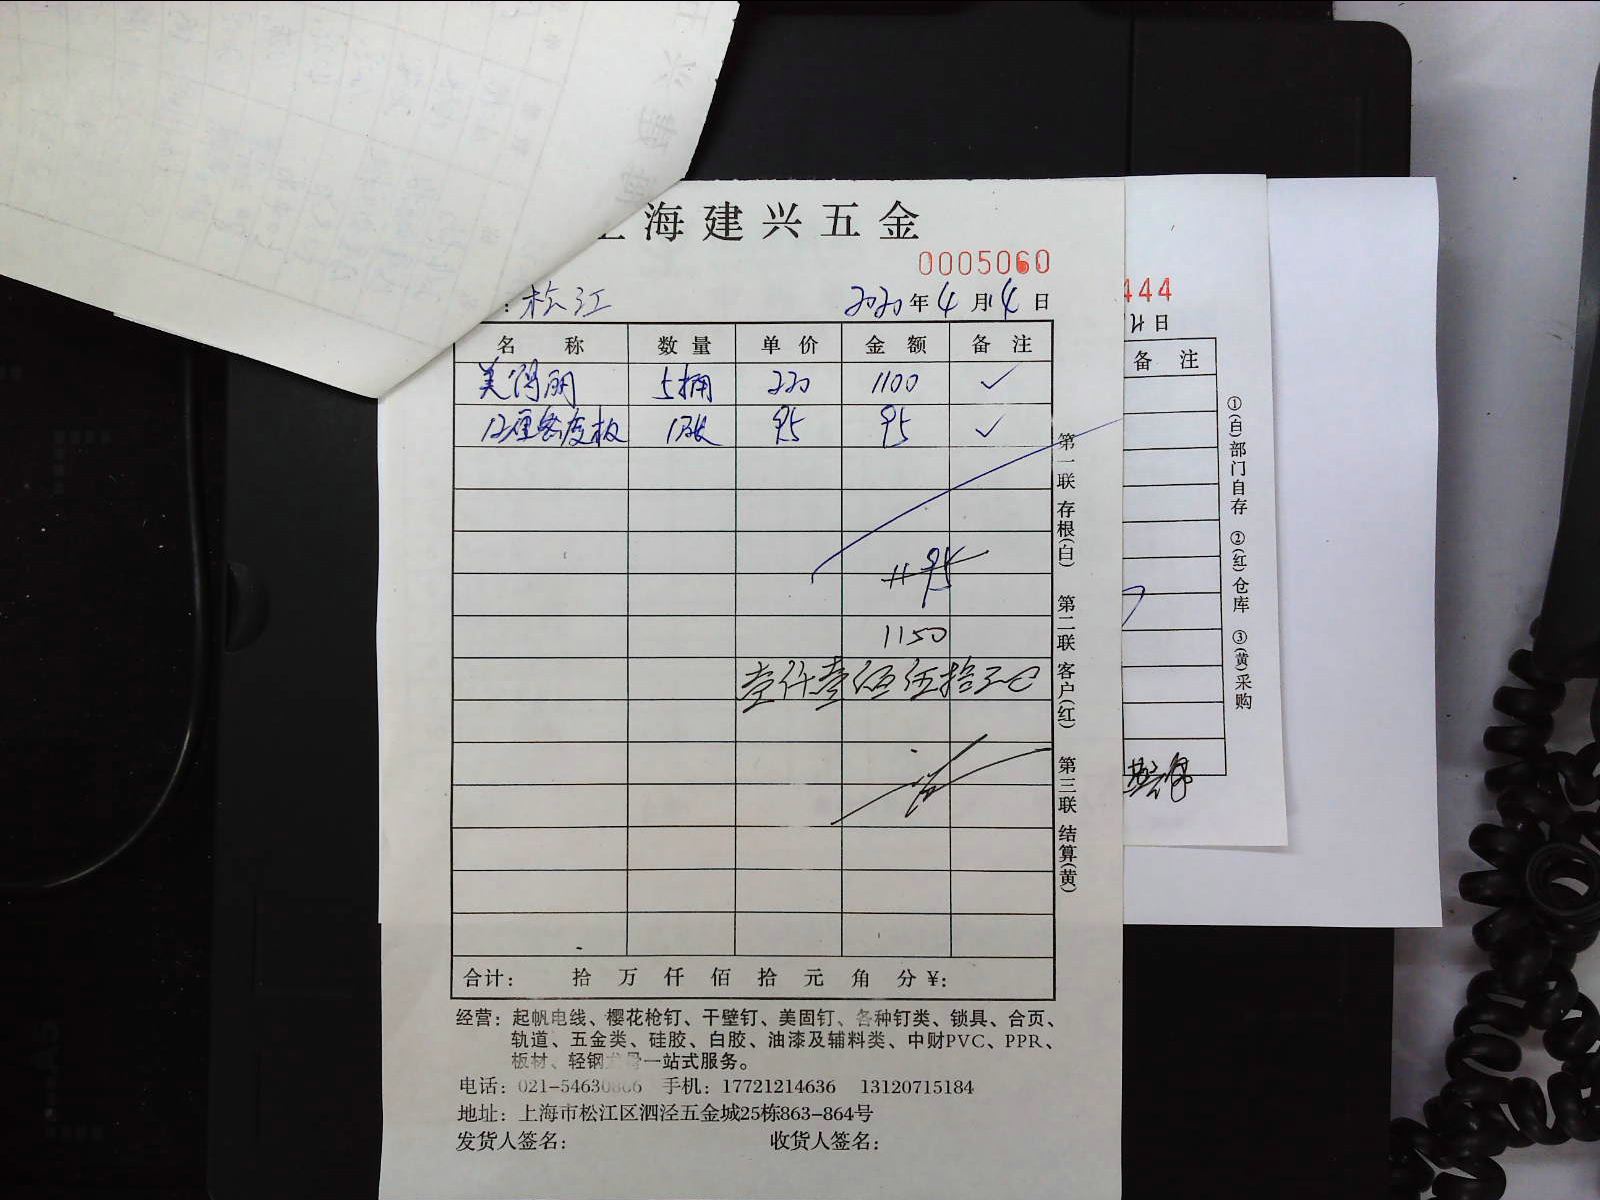 上海建兴五金
0005060
：松江
2020年4月14日
名称 数量 单价 金额 备注
美得丽 5桶 220 1100 ✓
12厘密度板 1张 95 95 ✓
1195
1150
壹仟壹佰伍拾元
第一联 存根(白) 第二联 客户(红) 第三联 结算(黄)
合计： 拾 万 仟 佰 拾 元 角 分 ¥:
经营：起帆电线、樱花枪钉、干壁钉、美固钉、各种钉类、锁具、合页、
轨道、五金类、硅胶、白胶、油漆及辅料类、中财PVC、PPR、
板材、轻钢龙骨一站式服务。
电话：021-54630866 手机：17721214636 13120715184
地址：上海市松江区泗泾五金城25栋863-864号
发货人签名： 收货人签名：
444
日
备注
①(白)部门自存 ②(红)仓库 ③(黄)采购